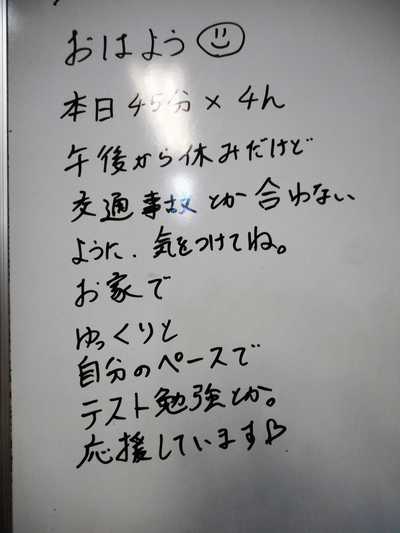 おはよう☺
本日 45分 × 4h
午後から休みだけど
交通事故とか合わない
ように、気をつけてね。
お家で
ゆっくりと
自分のペースで
テスト勉強とか。
応援しています♡